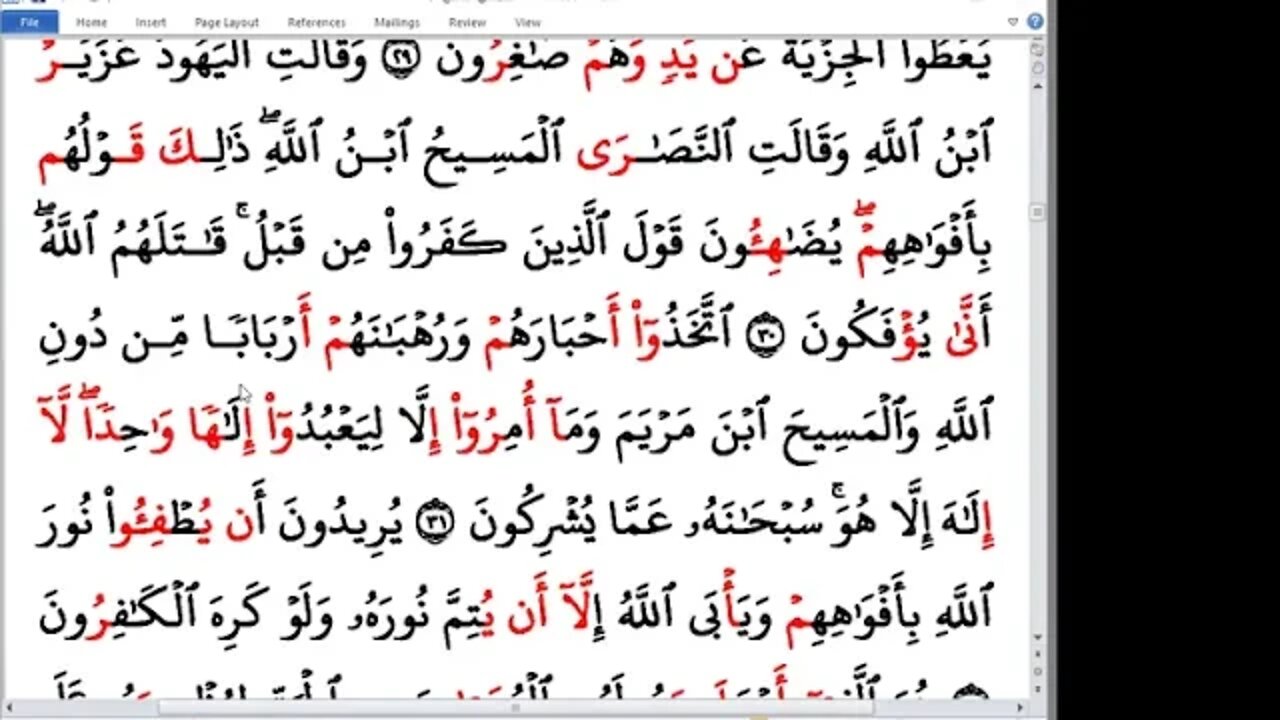 File Home Insert Page Layout References Mailings Review View
يُعْطُوا الْجِزْيَةَ عَن يَدٍ وَهُمْ صَٰغِرُون ٢٩ وَقَالَتِ الْيَهُودُ عُزَيْرٌ
ٱبْنُ ٱللَّهِ وَقَالَتِ ٱلنَّصَٰرَى ٱلْمَسِيحُ ٱبْنُ ٱللَّهِۖ ذَٰلِكَ قَوْلُهُم
بِأَفْوَٰهِهِمْۖ يُضَٰهِـُٔونَ قَوْلَ ٱلَّذِينَ كَفَرُوا۟ مِن قَبْلُۚ قَٰتَلَهُمُ ٱللَّهُۖ
أَنَّىٰ يُؤْفَكُونَ ٣٠ ٱتَّخَذُوٓا۟ أَحْبَارَهُمْ وَرُهْبَٰنَهُمْ أَرْبَابًا مِّن دُونِ
ٱللَّهِ وَٱلْمَسِيحَ ٱبْنَ مَرْيَمَ وَمَآ أُمِرُوٓا۟ إِلَّا لِيَعْبُدُوٓا۟ إِلَٰهًا وَٰحِدًاۖ لَّآ
إِلَٰهَ إِلَّا هُوَۚ سُبْحَٰنَهُۥ عَمَّا يُشْرِكُونَ ٣١ يُرِيدُونَ أَن يُطْفِـُٔوا۟ نُورَ
ٱللَّهِ بِأَفْوَٰهِهِمْ وَيَأْبَى ٱللَّهُ إِلَّآ أَن يُتِمَّ نُورَهُۥ وَلَوْ كَرِهَ ٱلْكَٰفِرُونَ